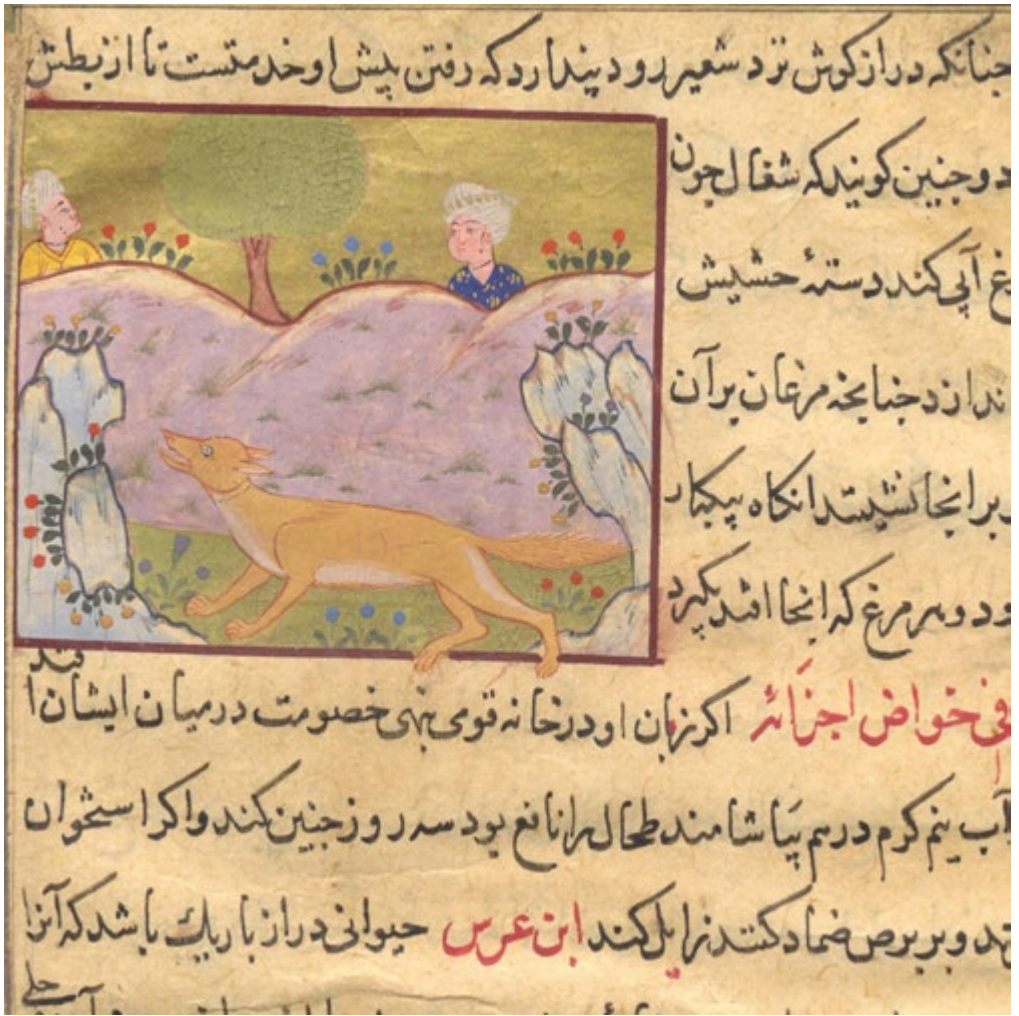 جنانکه درازکوش نزد شعیر رود پندارد که رفتن پیش او خدمتست تا از بطش
د و جنین کویند که شغال جون
غ آبی کند دستهٔ حشیش
اندازد جنانجه مرغان بر آن
بر انجا نشینند انکاه بیکبار
ود و هر مرغ که انجا افتد بکیرد
فی خواص اجزائه اکر زبان او در خانه قومی نهی خصومت در میان ایشان افتد
آب نیم کرم درهم بیاشامند طحال را نافع بود سه روز جنین کند و اکر استخوان
ند و بر برص ضماد کنند زایل کند ابن عرس حیوانی دراز باریك باشد که آنرا